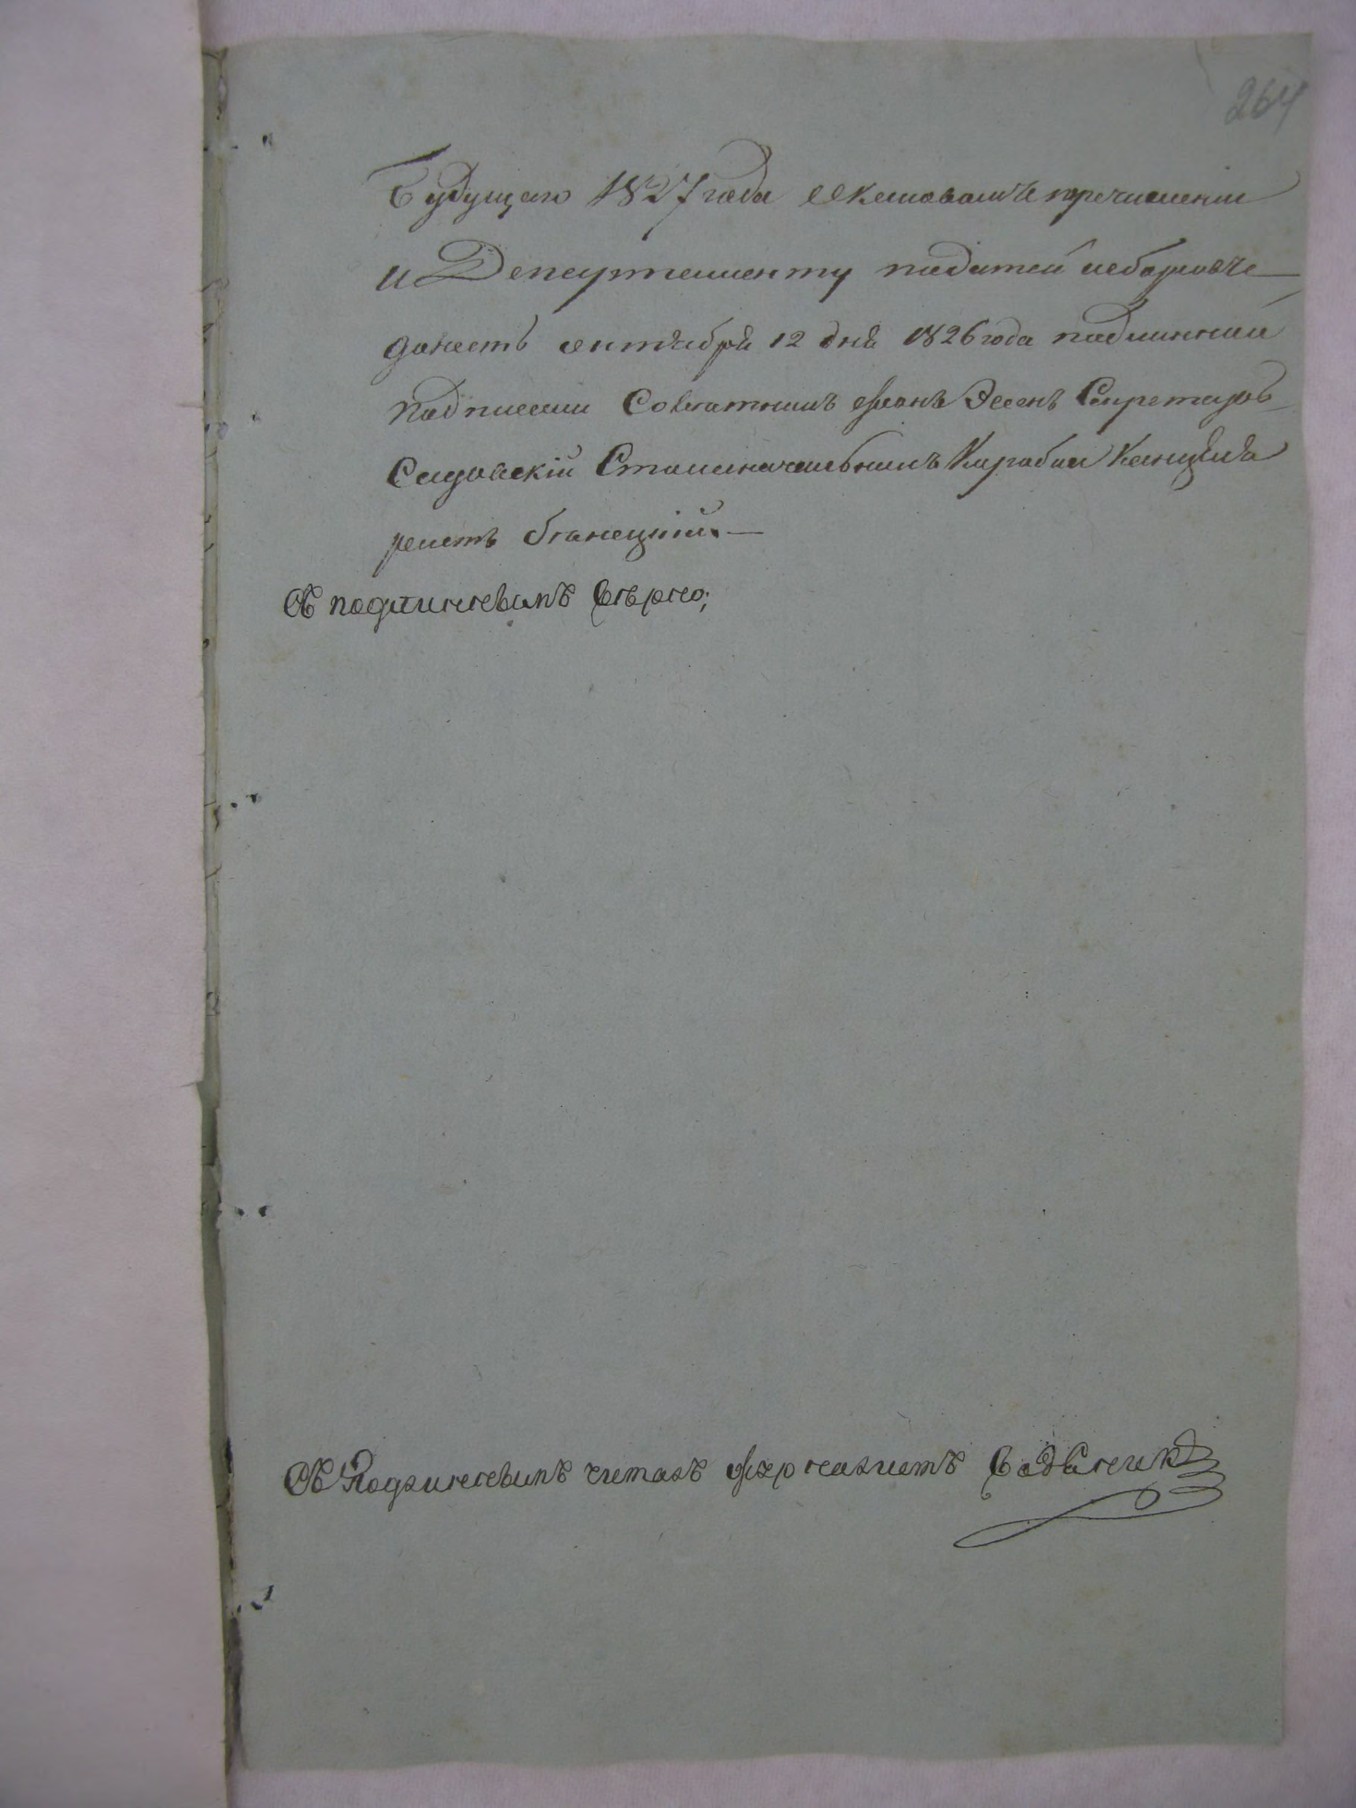 264
Будущаго 1827 года о перечисленіи
и Департаменту податей и сборовъ
донесть сентября 12 дня 1826 года подлинной
подписали Советникъ фонъ Эссенъ Секретарь
Садовскій Столоначальникъ Карабан Канцеля
ристъ
Съ подлиннымъ верно;
Съ Подлиннымъ читалъ